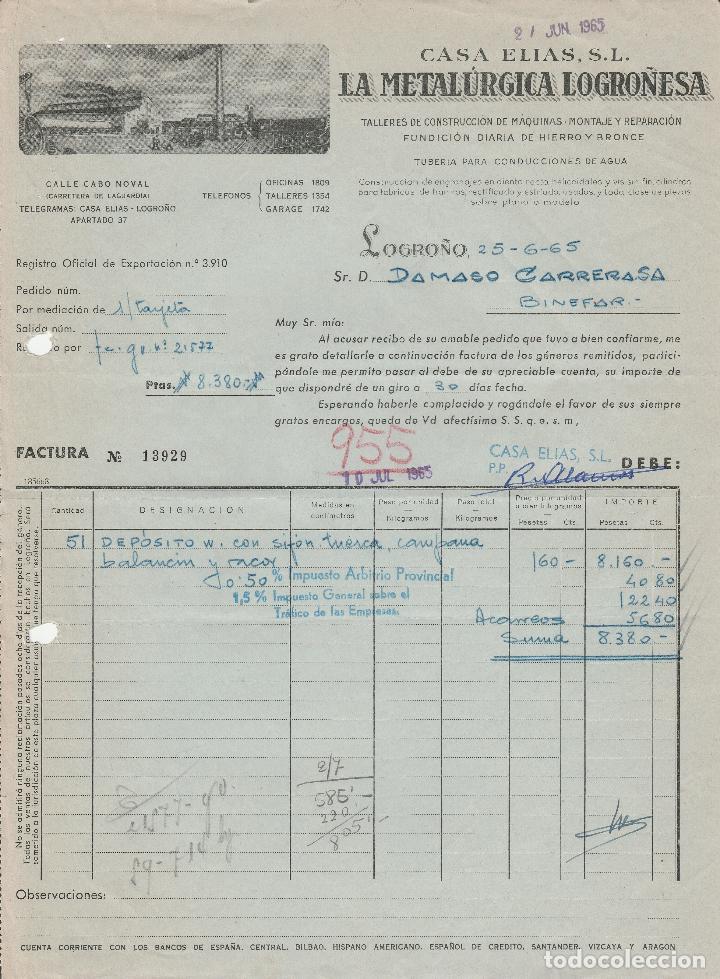 21 JUN 1965
CASA ELIAS, S.L.
LA METALÚRGICA LOGROÑESA
TALLERES DE CONSTRUCCIÓN DE MÁQUINAS - MONTAJE Y REPARACIÓN
FUNDICIÓN DIARIA DE HIERRO Y BRONCE
TUBERIA PARA CONDUCCIONES DE AGUA
Construcción de engranajes en diente recto, helicoidales y vis sin fin, cilindros
para fábricas de harinas, rectificado y estriado usados, y toda clase de piezas
sobre plano o modelo
CALLE CABO NOVAL
(CARRETERA DE LAGUARDIA)
TELEGRAMAS: CASA ELIAS - LOGROÑO
APARTADO 37
TELEFONOS
OFICINAS 1809
TALLERES 1354
GARAGE 1742
LOGROÑO, 25-6-65
Sr. D. DAMASO CARRERASA
BINEFAR.-
Registro Oficial de Exportación n.º 3.910
Pedido núm.
Por mediación de s/ tarjeta
Salida núm.
por fc. gv. nº 21577
Ptas. # 8.380.-#
Muy Sr. mío:
Al acusar recibo de su amable pedido que tuvo a bien confiarme, me
es grato detallarle a continuación factura de los géneros remitidos, partici-
pándole me permito pasar al debe de su apreciable cuenta, su importe de
que dispondré de un giro a 30 días fecha.
Esperando haberle complacido y rogándole el favor de sus siempre
gratos encargos, queda de Vd afectísimo S. S. q. e. s. m.,
FACTURA № 13929
955
10 JUL 1965
CASA ELIAS, S.L.
P.P.
DEBE:
185668
Cantidad DESIGNACION Medidas en centímetros Peso por unidad Kilogramos Peso total Kilogramos Precio por unidad o cien kilogramos Pesetas Cts. IMPORTE Pesetas Cts.
51 DEPÓSITO W. con sifon. tuerca, campana
balancin y racor 160 - 8.160.-
0'50 % Impuesto Arbitrio Provincial 40 80
1,5 % Impuesto General sobre el 122 40
Tráfico de las Empresas.
Acarreos 56 80
Suma 8.380 -
2/7
585'-
220
805'-
21577-
No se admitirá ninguna reclamación pasados ocho días de la recepción del género.
Todas las ventas de nuestros artículos se consideran hechas en Logroño. Será
sometido a la jurisdicción de esta plaza cualquier asunto que tenga que resolverse.
Observaciones:
CUENTA CORRIENTE CON LOS BANCOS DE ESPAÑA, CENTRAL, BILBAO, HISPANO AMERICANO, ESPAÑOL DE CREDITO, SANTANDER, VIZCAYA Y ARAGON
todocoleccion